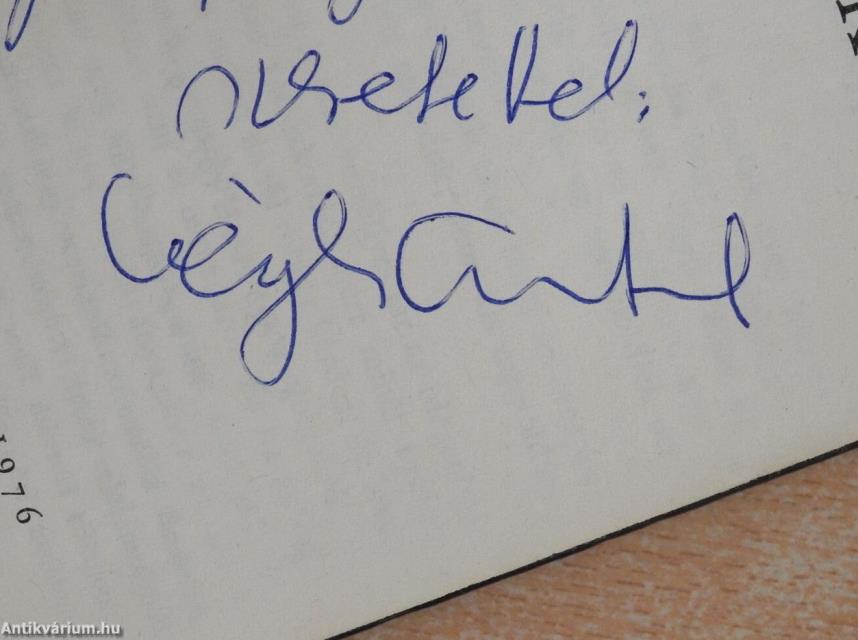 szeretettel:
Végh Antal
1976
Antikvárium.hu